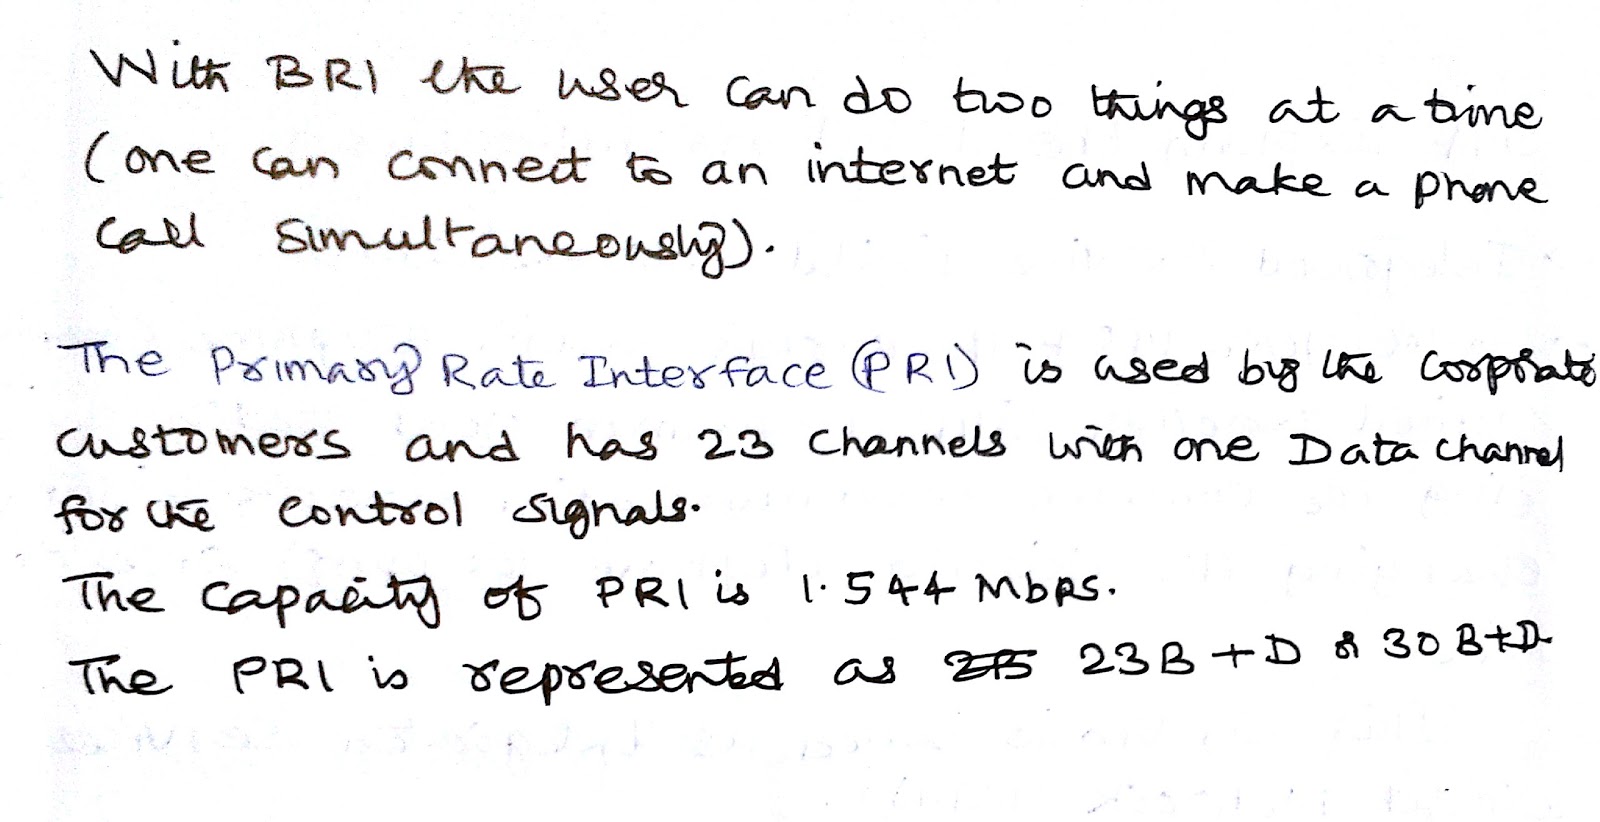 With BRI the user can do two things at a time
(one can connect to an internet and make a phone
call simultaneously).
The Primary Rate Interface (PRI) is used by the corporate
customers and has 23 channels with one Data channel
for the control signals.
The capacity of PRI is 1.544 Mbps.
The PRI is represented as 23B + D or 30B+D